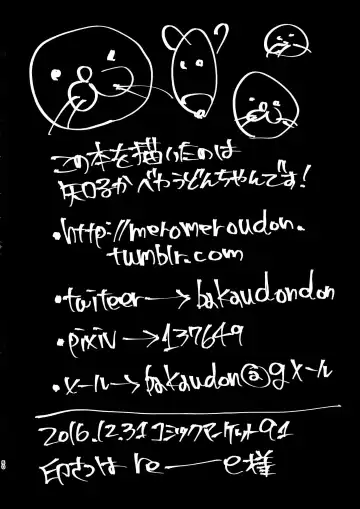 この本を描いたのは
矢口子かべわうどんちゃんです!
・http://meromeroudon.
tumblr.com
・twiteer→bakaudondon
・pixiv→137649
・メール→bakaudon@gメール
2016.12.31 コミックマーケット91
印さつは re――e様